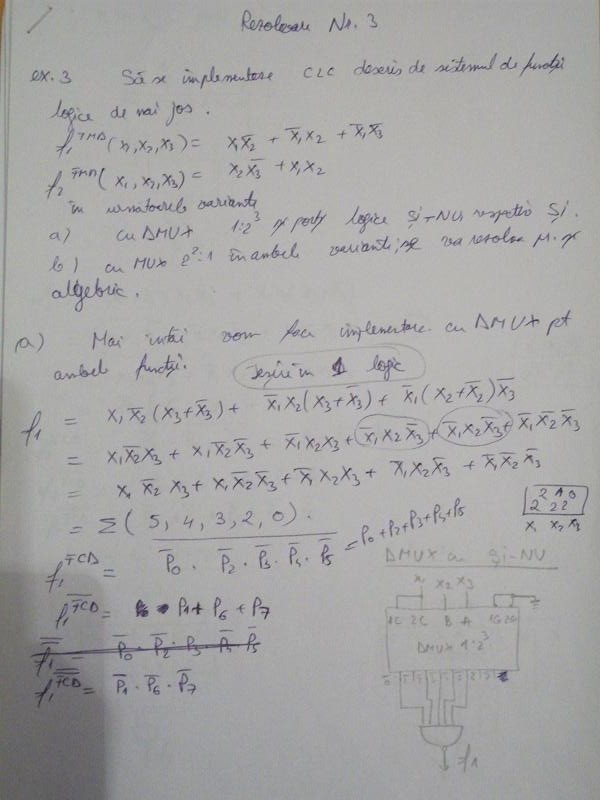 Rezolvare Nr. 3
ex. 3 Să se implementeze CLC descris de sistemul de funcții
logice de mai jos.
f₁ᵀᴹᴰ(x₁,x₂,x₃) = x₁x̅₂ + x̅₁x₂ + x̅₁x̅₃
f₂ᵀᴹᴰ(x₁,x₂,x₃) = x₂x̅₃ + x₁x₂
în următoarele variante
a) cu DMUX 1:2³ și porți logice ȘI-NU, respectiv ȘI.
b) cu MUX 2²:1 în ambele variante, se va rezolva și
algebric.
a) Mai întâi vom face implementare cu DMUX pt
ambele funcții. Ieșire în 1 logic
f₁ = x₁x̅₂(x₃+x̅₃) + x̅₁x₂(x₃+x̅₃) + x̅₁(x₂+x̅₂)x̅₃
= x₁x̅₂x₃ + x₁x̅₂x̅₃ + x̅₁x₂x₃ + x̅₁x₂x̅₃ + x̅₁x₂x̅₃ + x̅₁x̅₂x̅₃
= x₁x̅₂x₃ + x₁x̅₂x̅₃ + x̅₁x₂x₃ + x̅₁x₂x̅₃ + x̅₁x̅₂x̅₃
= Σ(5, 4, 3, 2, 0).
2 1 0
2 2 2
x₁ x₂ x₃
f₁ᵀᶜᴰ = P̅₀ · P̅₂ · P̅₃ · P̅₄ · P̅₅ = P₀+P₂+P₃+P₄+P₅
f₁ᵀᶜᴰ = P₁ + P₆ + P₇
f̅₁ = P̅₀ · P̅₂ · P̅₃ · P̅₄ · P̅₅
f₁ᵀᶜᴰ = P̅₁ · P̅₆ · P̅₇
DMUX cu ȘI-NU
x₁ x₂ x₃
1C 2C B A 1G 2G
DMUX 1:2³
f₁